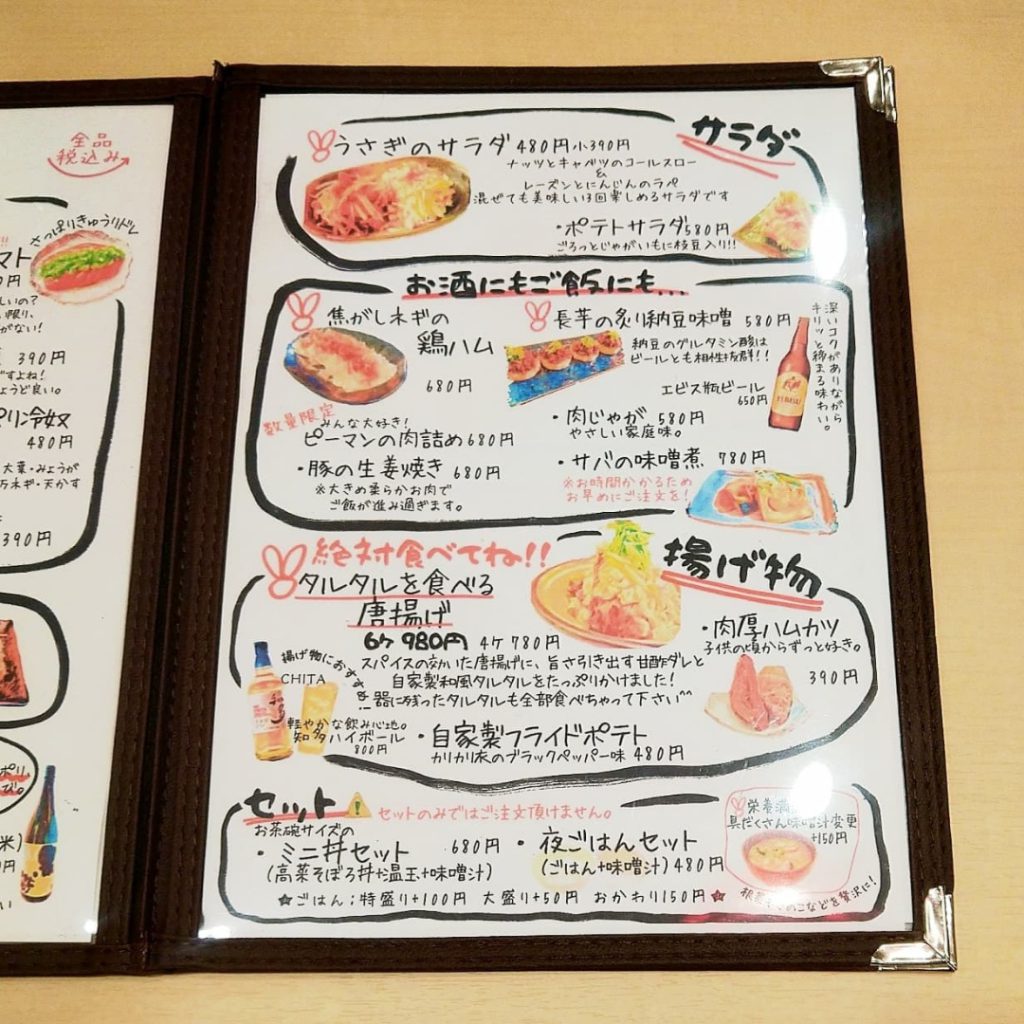 全品
税込み
さっぱりきゅうりドレ
マト
0円
しいの?
い限り、
がない!
390円
ですよね!
ょうど良い。
パリ冷奴
480円
大葉・みょうが
万ネギ・天かす
390円
ポリ
び。
米)
円
い
サラダ
うさぎのサラダ 480円 小390円
ナッツとキャベツのコールスロー
&
レーズンとにんじんのラペ
混ぜても美味しい3回楽しめるサラダです
・ポテトサラダ 580円
ごろっとじゃがいもに枝豆入り!!
お酒にもご飯にも...
焦がしネギの
鶏ハム
680円
数量限定
みんな大好き!
ピーマンの肉詰め 680円
・豚の生姜焼き 680円
※大きめ柔らかお肉で
ご飯が進み過ぎます。
長芋の炙り納豆味噌 580円
納豆のグルタミン酸は
ビールとも相性抜群!!
エビス瓶ビール
650円
深いコクがありながら
キリッと締まる味わい。
・肉じゃが 580円
やさしい家庭味。
・サバの味噌煮 780円
※お時間かかるため
お早めにご注文を!
揚げ物
絶対食べてね!!
タルタルを食べる
唐揚げ
6ケ 980円 4ケ 780円
スパイスの効いた唐揚げに、旨さ引き出す甘酢ダレと
自家製和風タルタルをたっぷりかけました!
器に残ったタルタルも全部食べちゃって下さい^^
揚げ物におすすめ!
CHITA
軽やかな飲み心地。
知多ハイボール
800円
・自家製フライドポテト
カリカリ衣のブラックペッパー味 480円
・肉厚ハムカツ
子供の頃からずっと好き。
390円
セット
セットのみではご注文頂けません。
お茶碗サイズの
・ミニ丼セット 680円
(高菜そぼろ丼+温玉+味噌汁)
・夜ごはんセット
(ごはん+味噌汁) 480円
★ごはん;特盛り+100円 大盛り+50円 おかわり150円★
栄養満
具だくさん味噌汁変更
+150円
のこなどを贅沢に!